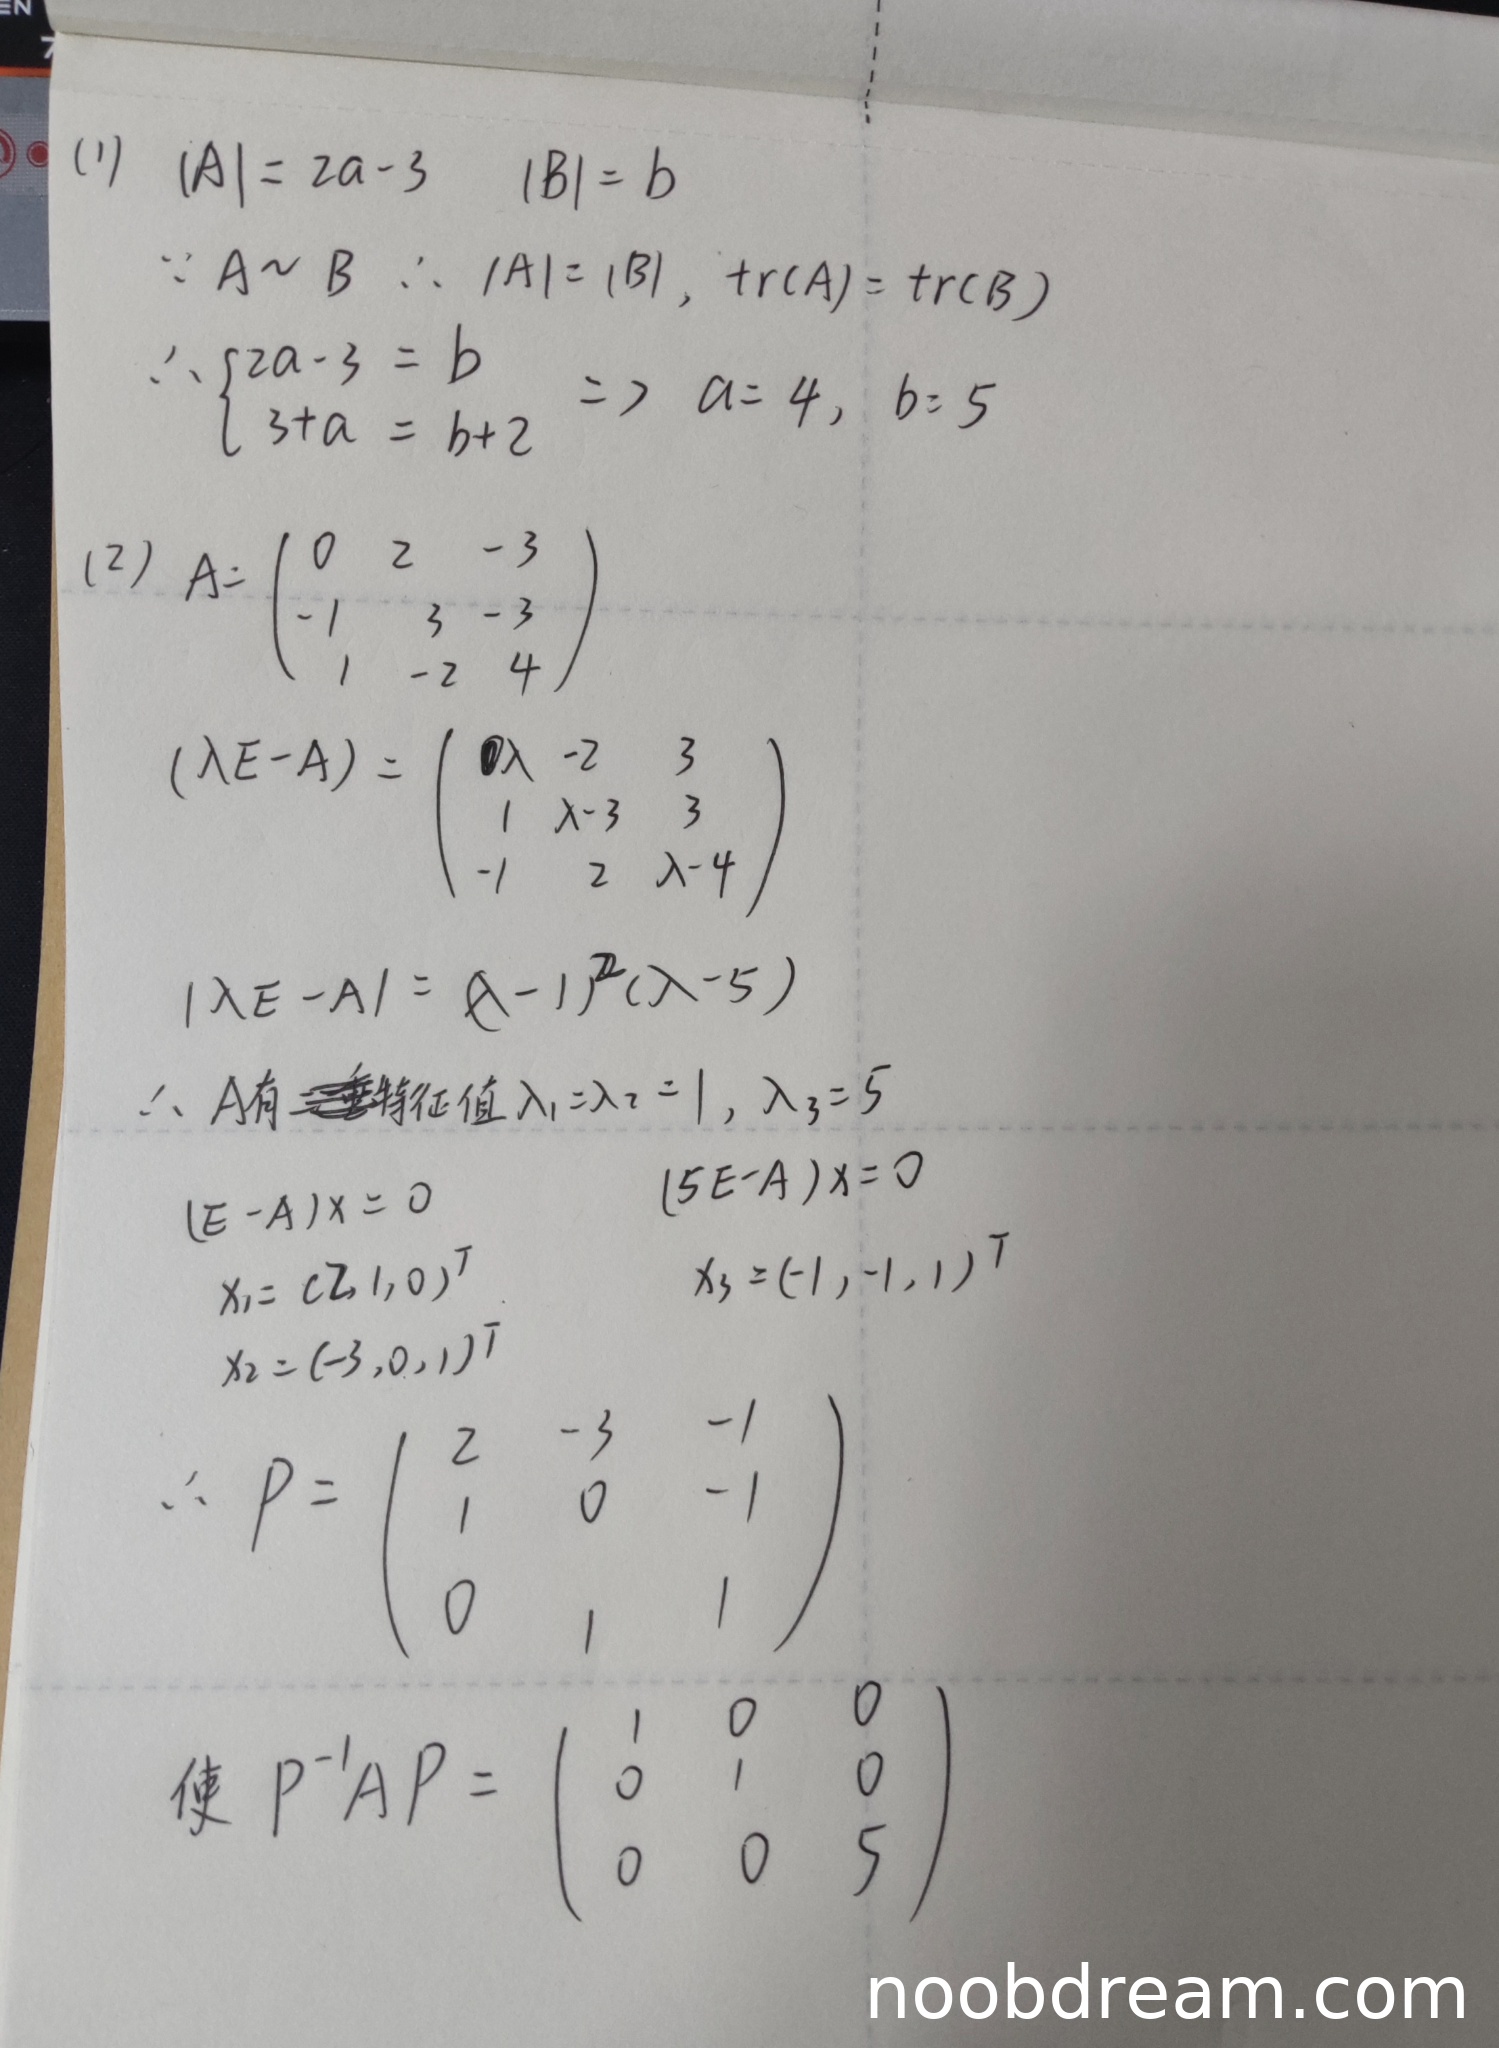 (1) |A| = 2a-3 |B| = b
∵ A~B ∴ |A| = |B|, tr(A) = tr(B)
∴ { 2a-3 = b
3+a = b+2 => a=4, b=5
(2) A= ( 0 2 -3
-1 3 -3
1 -2 4 )
(λE-A) = ( λ -2 3
1 λ-3 3
-1 2 λ-4 )
|λE-A| = (λ-1)²(λ-5)
∴ A有特征值λ₁=λ₂=1, λ₃=5
(E-A)x=0 (5E-A)x=0
x₁=(2,1,0)ᵀ x₃=(-1,-1,1)ᵀ
x₂=(-3,0,1)ᵀ
∴ P= ( 2 -3 -1
1 0 -1
0 1 1 )
使 P⁻¹AP = ( 1 0 0
0 1 0
0 0 5 )
noobdream.com